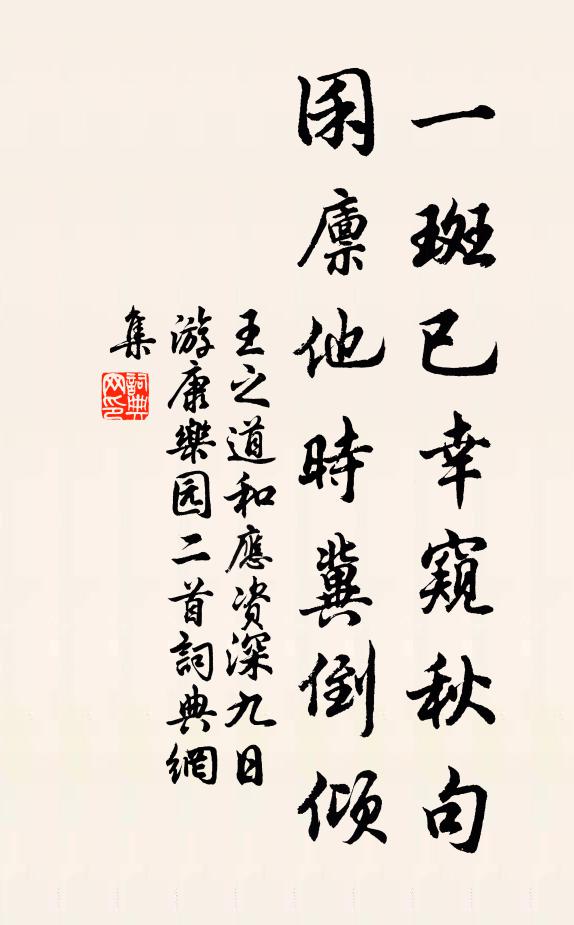 一斑已幸窺秋句
囷廪他時冀倒傾
王之道和應资深九日
游康樂园二首詞典網
集
詞典網印